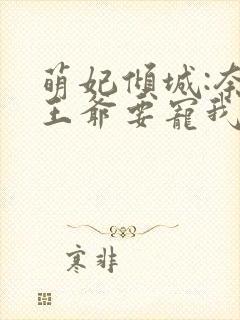 萌妃傾城:奈
王爺要寵我
寒非